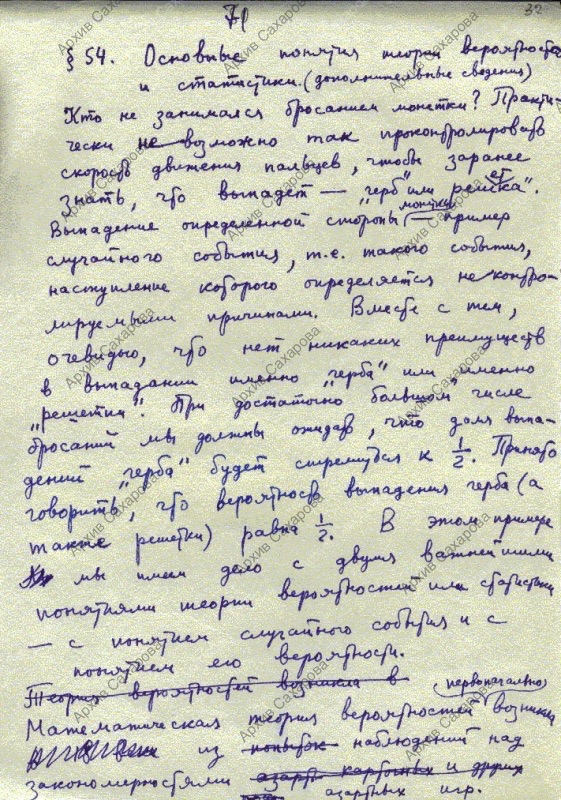 71
32
§ 54. Основные понятия теории вероятностей
и статистики. (дополнительные сведения)
Кто не занимался бросанием монетки? Практи-
чески невозможно так проконтролировать
скорость движения пальцев, чтобы заранее
знать, что выпадет — „герб" или решетка".
Выпадение определенной стороны монетки — пример
случайного события, т.е. такого события,
наступление которого определяется неконтро-
лируемыми причинами. Вместе с тем,
очевидно, что нет никаких преимуществ
в выпадании именно „герба" или именно
„решетки". При достаточно большом числе
бросаний мы должны ожидать, что доля выпа-
дений „герба" будет стремиться к 1/2. Принято
говорить, что вероятность выпадения герба (а
также решетки) равна 1/2. В этом примере
мы имеем дело с двумя важнейшими
понятиями теории вероятностей или статистики
— с понятием случайного события и с
понятием его вероятности.
Теория вероятностей возникла в
Математическая теория вероятностей первоначально возникла
из попыток наблюдений над
закономерностями азартн карточных и других
азартных игр.
Архив Сахарова